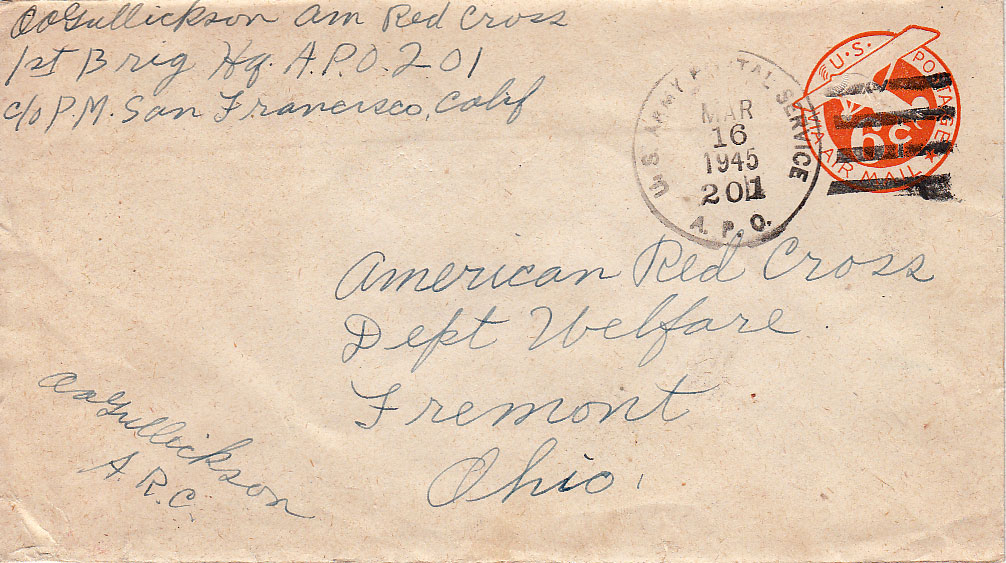 OO Gullickson Am Red Cross
1st Brig Hq. A.P.O. 201
c/o P.M. San Francisco, Calif
U.S. ARMY POSTAL SERVICE
MAR
16
1945
201
A. P. O.
U.S. POSTAGE
6c
VIA AIR MAIL
American Red Cross
Dept Welfare
Fremont
Ohio.
OO Gullickson
A.R.C.